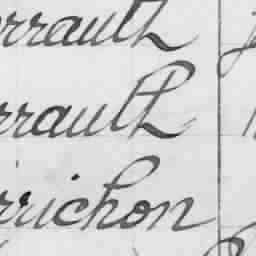 rrault
rrault
rrichon